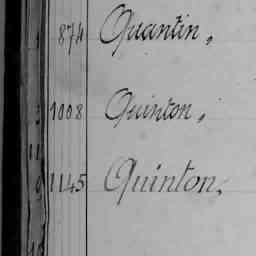 874 Quantin,
1008 Quinton,
1145 Quinton,